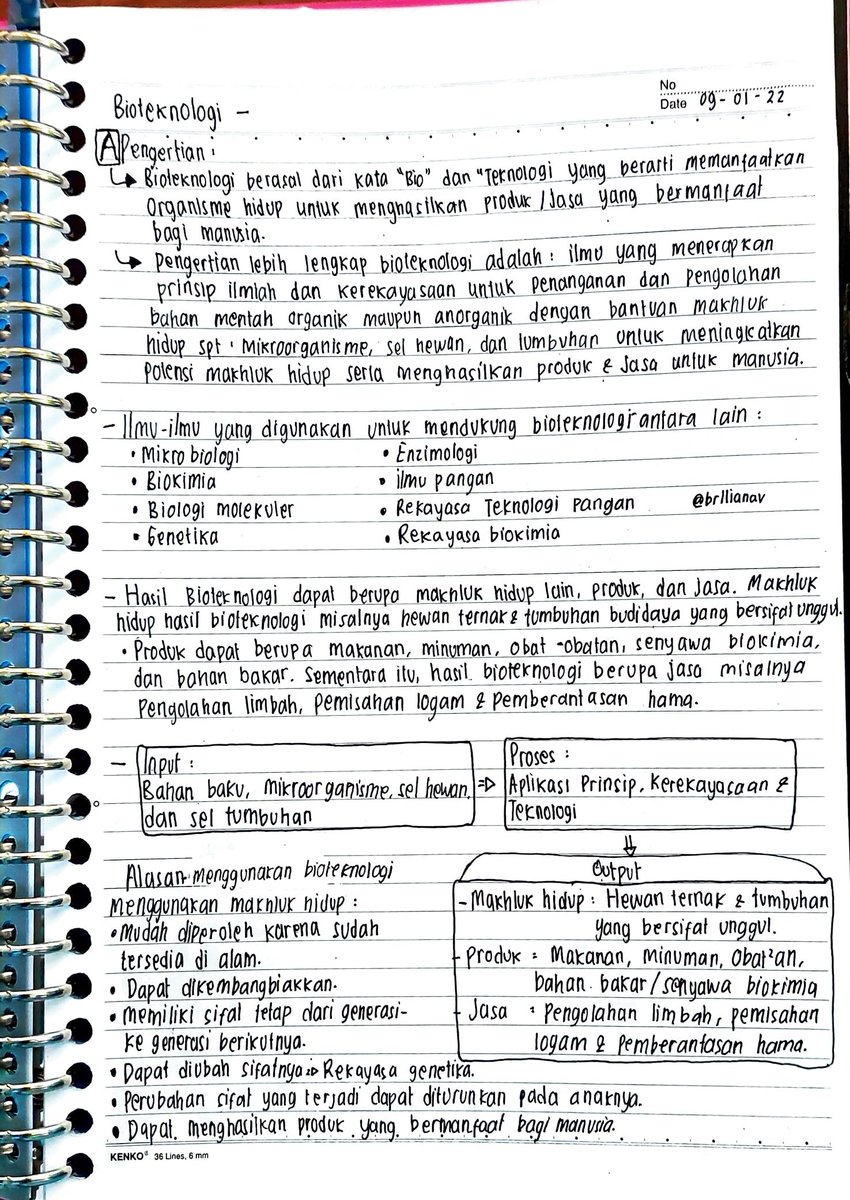 No
Date 09-01-22
Bioteknologi -
A Pengertian :
↳ Bioteknologi berasal dari kata "Bio" dan "Teknologi yang berarti memanfaatkan
Organisme hidup untuk menghasilkan produk / Jasa yang bermanfaat
bagi manusia.
↳ Pengertian lebih lengkap bioteknologi adalah : ilmu yang menerapkan
prinsip ilmiah dan kerekayasaan untuk penanganan dan pengolahan
bahan mentah organik maupun anorganik dengan bantuan makhluk
hidup spt : Mikroorganisme, sel hewan, dan tumbuhan untuk meningkatkan
potensi makhluk hidup serta menghasilkan produk & Jasa untuk manusia.
- Ilmu-ilmu yang digunakan untuk mendukung bioteknologi antara lain :
• Mikro biologi • Enzimologi
• Biokimia • ilmu pangan
• Biologi molekuler • Rekayasa Teknologi Pangan @brllianav
• Genetika • Rekayasa biokimia
- Hasil Bioteknologi dapat berupa makhluk hidup lain, produk, dan jasa. Makhluk
hidup hasil bioteknologi misalnya hewan ternak & tumbuhan budidaya yang bersifat unggul.
• Produk dapat berupa makanan, minuman, obat-obatan, senyawa biokimia,
dan bahan bakar. Sementara itu, hasil bioteknologi berupa jasa misalnya
Pengolahan limbah, pemisahan logam & pemberantasan hama.
- Input :
Bahan baku, mikroorganisme, sel hewan,
dan sel tumbuhan
⇒ Proses :
Aplikasi Prinsip, kerekayasaan &
Teknologi
⇓
Output
- Makhluk hidup : Hewan ternak & tumbuhan
yang bersifat unggul.
- Produk : Makanan, Minuman, Obat²an,
bahan bakar / senyawa biokimia
- Jasa : Pengolahan limbah, pemisahan
logam & pemberantasan hama.
Alasan menggunakan bioteknologi
menggunakan makhluk hidup :
• Mudah diperoleh karena sudah
tersedia di alam.
• Dapat dikembangbiakkan.
• Memiliki sifat tetap dari generasi-
ke generasi berikutnya.
• Dapat diubah sifatnya ⇒ Rekayasa genetika.
• Perubahan sifat yang terjadi dapat diturunkan pada anaknya.
• Dapat menghasilkan produk yang bermanfaat bagi manusia.
KENKO® 36 Lines, 6 mm